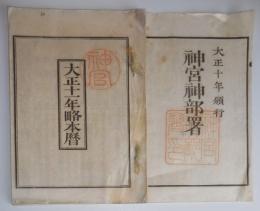 大正十年頒行
神宮神部署
大正十一年略本暦